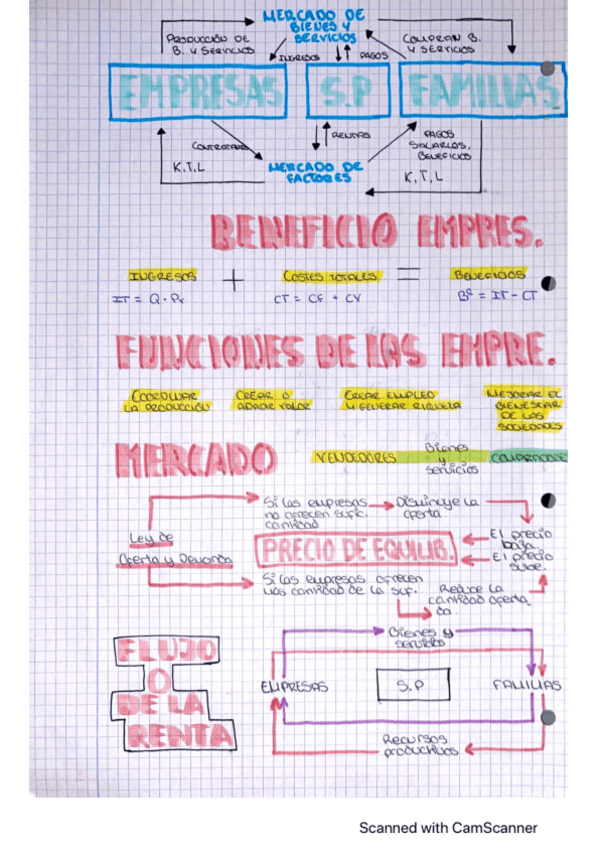 MERCADO DE
BIENES Y
SERVICIOS
PRODUCCIÓN DE
B. Y SERVICIOS
COMPRAN B.
Y SERVICIOS
INGRESOS
PAGOS
EMPRESAS
S.P
FAMILIAS
RENTAS
PAGOS
SALARIOS,
BENEFICIO
K.T.L
MERCADO DE
FACTORES
K.T.L
BENEFICIO EMPRES.
INGRESOS + COSTES TOTALES = BENEFICIOS
IT = Q · Pv
CT = CF + CV
Bº = IT - CT
FUNCIONES DE LAS EMPRE.
COORDINAR
LA PRODUCCIÓN
CREAR O
AÑADIR VALOR
CREAR EMPLEO
Y GENERAR RIQUEZA
MEJORAR EL
BIENESTAR
DE LAS
SOCIEDADES
MERCADO
VENDEDORES
Bienes
y
servicios
COMPRADORES
Ley de
Oferta y Demanda
Si las empresas
no ofrecen sufic.
cantidad
Disminuye la
oferta
El precio
baja.
PRECIO DE EQUILIB.
El precio
sube.
Si las empresas ofrecen
más cantidad de la suf.
Reduce la
cantidad oferta
da
FLUJO
O
DE LA
RENTA
Bienes y
servicios
EMPRESAS
S.P
FAMILIAS
Recursos
productivos
Scanned with CamScanner